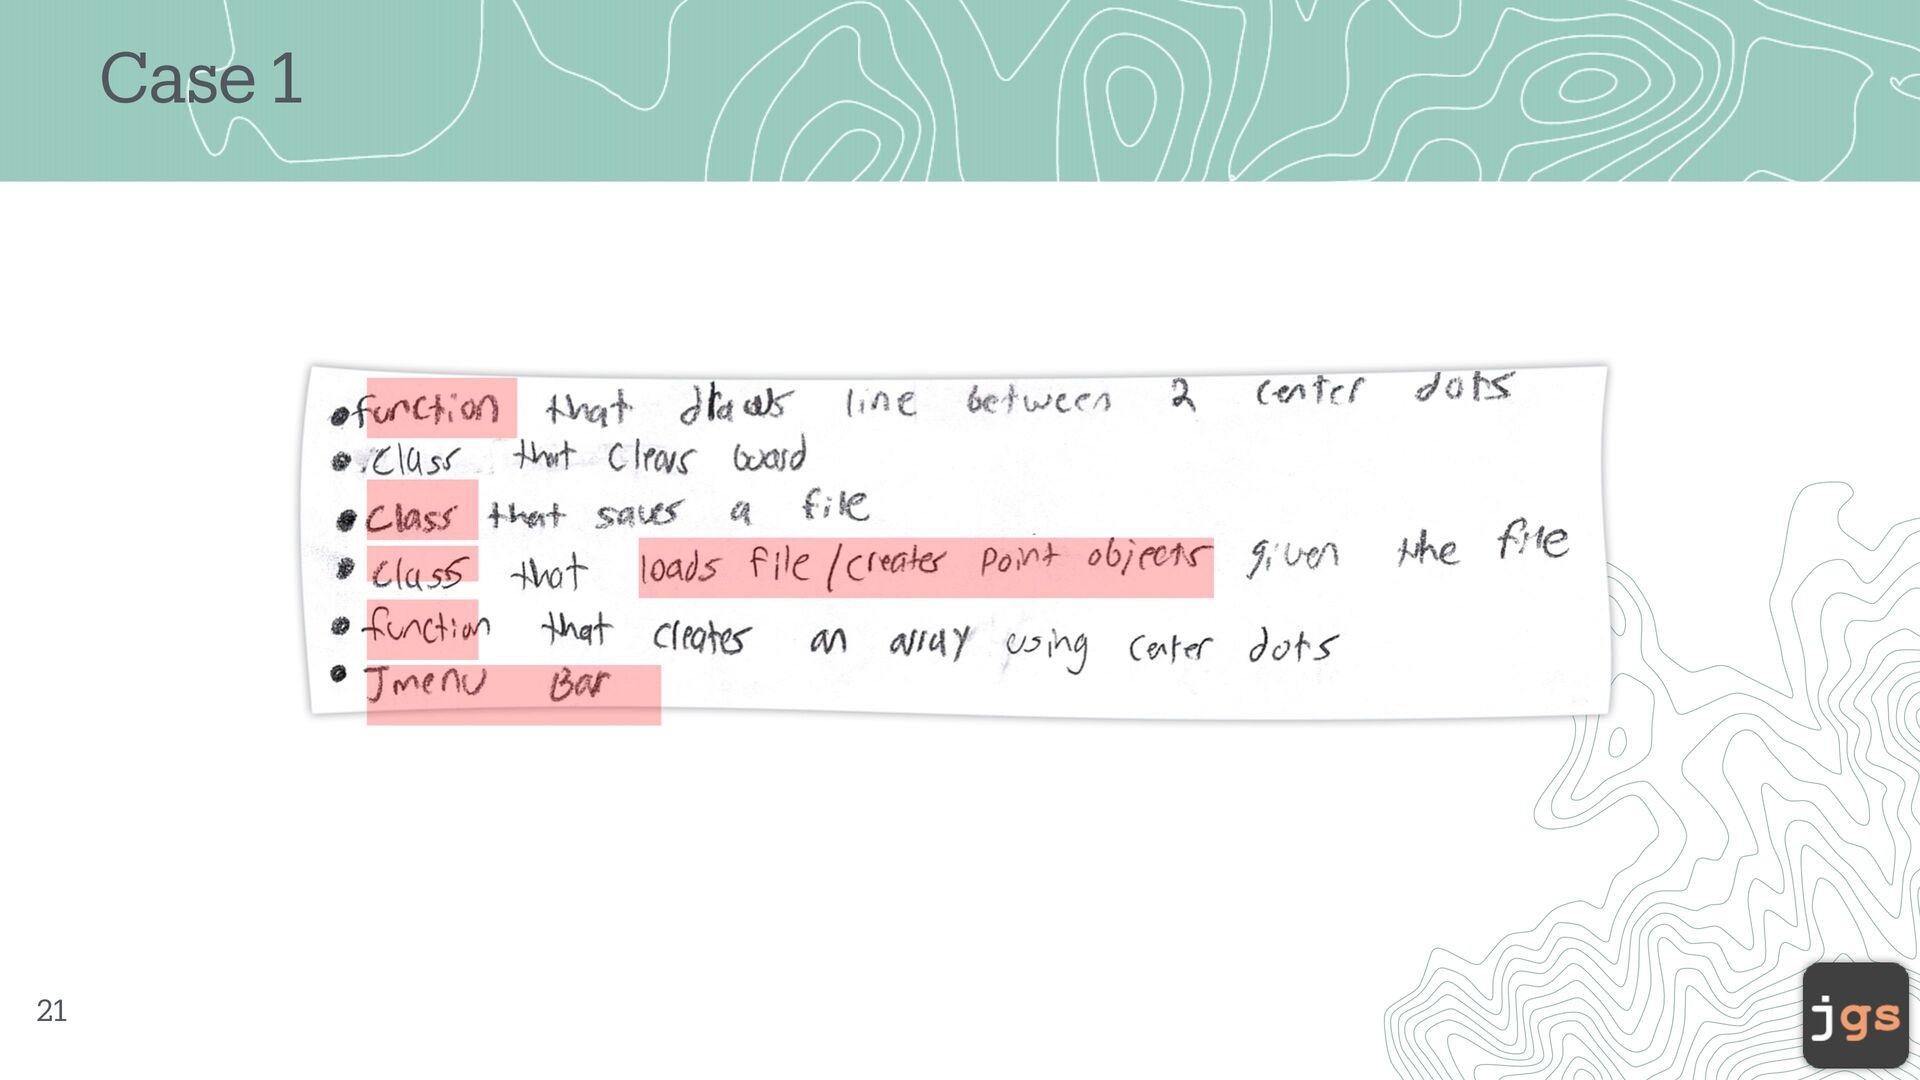 Case 1
•function that draws line between 2 center dots
• Class that clears board
• Class that saves a file
• Class that loads file/creates point objects given the file
• function that creates an array using center dots
• Jmenu Bar
21
jgs